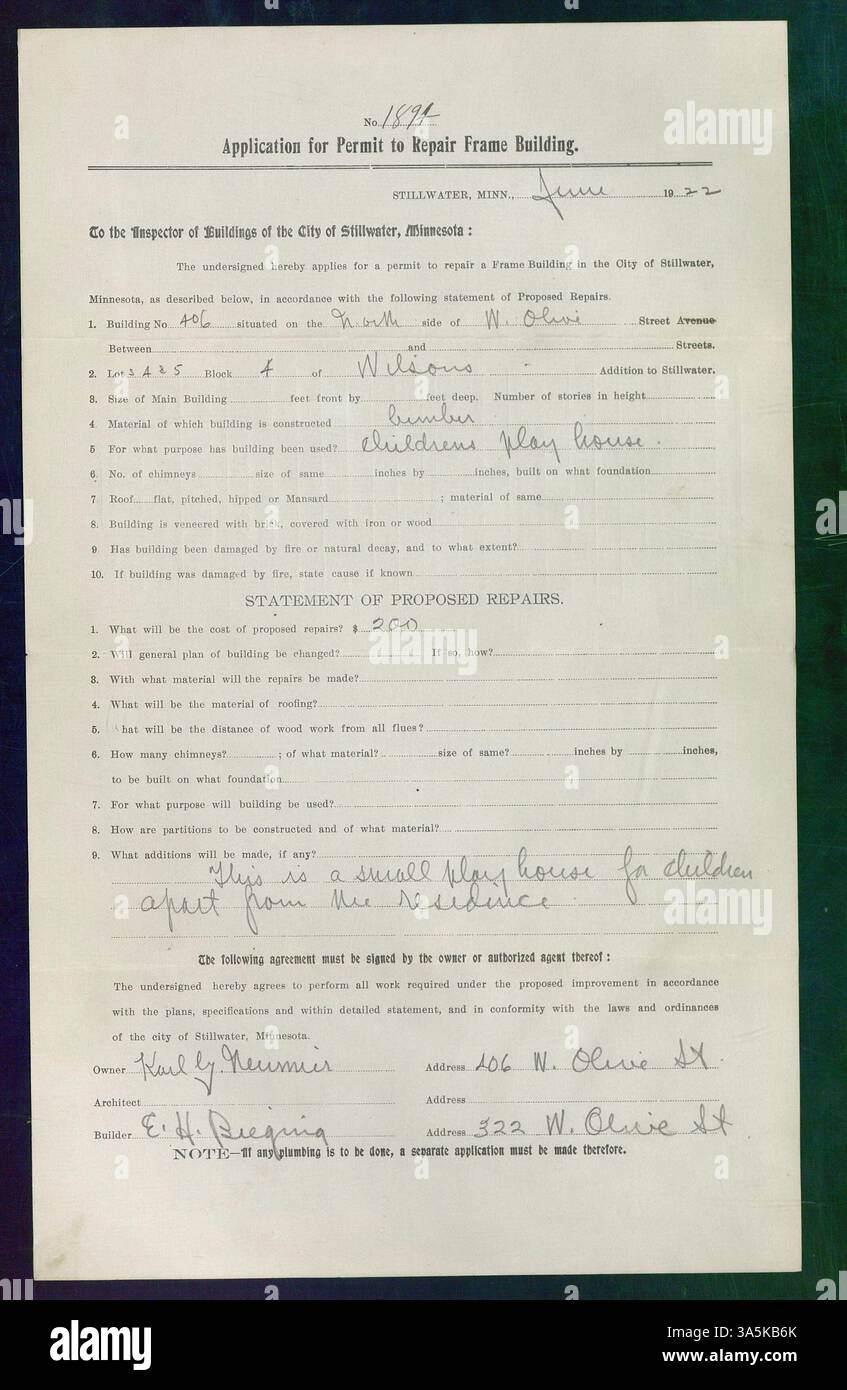 No. 1894
Application for Permit to Repair Frame Building.
STILLWATER, MINN., June 1922
To the Inspector of Buildings of the City of Stillwater, Minnesota:
The undersigned hereby applies for a permit to repair a Frame Building in the City of Stillwater,
Minnesota, as described below, in accordance with the following statement of Proposed Repairs.
1. Building No 406 situated on the North side of W. Olive Street Avenue
Between and Streets.
2. Lot 3 4 & 5 Block 4 of Wilsons Addition to Stillwater.
3. Size of Main Building feet front by feet deep. Number of stories in height
4. Material of which building is constructed lumber
5 For what purpose has building been used? childrens play house.
6. No. of chimneys size of same inches by inches, built on what foundation
7 Roof flat, pitched, hipped or Mansard ; material of same
8. Building is veneered with brick, covered with iron or wood
9 Has building been damaged by fire or natural decay, and to what extent?
10. If building was damaged by fire, state cause if known
STATEMENT OF PROPOSED REPAIRS.
1. What will be the cost of proposed repairs? $ 200
2. Will general plan of building be changed? If so, how?
3. With what material will the repairs be made?
4. What will be the material of roofing?
5. What will be the distance of wood work from all flues?
6. How many chimneys? ; of what material? size of same? inches by inches,
to be built on what foundation
7. For what purpose will building be used?
8. How are partitions to be constructed and of what material?
9. What additions will be made, if any?
This is a small play house for children
apart from the residence
The following agreement must be signed by the owner or authorized agent thereof:
The undersigned hereby agrees to perform all work required under the proposed improvement in accordance
with the plans, specifications and within detailed statement, and in conformity with the laws and ordinances
of the city of Stillwater, Minnesota.
Owner Karl G. Neumeir Address 406 W. Olive St.
Architect Address
Builder E. H. Bieging Address 322 W. Olive St
NOTE—If any plumbing is to be done, a separate application must be made therefore.
alamy
alamy
Image ID: 3A5KB6K
www.alamy.com